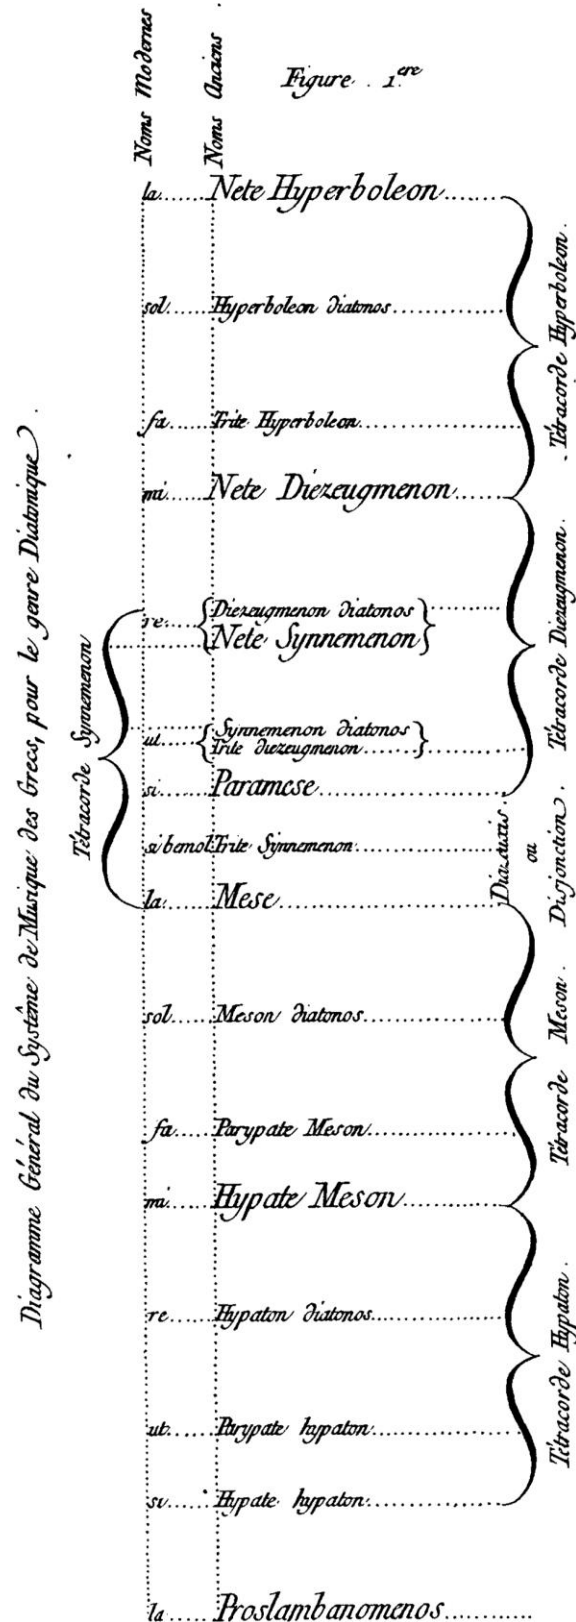 Diagramme Général du Systême de Musique des Grecs, pour le genre Diatonique.
Noms Modernes
Noms Anciens.
Figure 1.ere
la Nete Hyperboleon
sol Hyperboleon diatonos
fa Trite Hyperboleon
mi Nete Diezeugmenon
re Diezeugmenon diatonos
Nete Synnemenon
ut Synnemenon diatonos
Trite diezeugmenon
si Paramese
si bemol Trite Synnemenon
la Mese
sol Meson diatonos
fa Parypate Meson
mi Hypate Meson
re Hypaton diatonos
ut Parypate hypaton
si Hypate hypaton
la Proslambanomenos
Tétracorde Synnemenon
Tétracorde Hyperboleon.
Tétracorde Diezeugmenon.
Diazeuxis.
ou
Disjonction.
Tétracorde Meson.
Tétracorde Hypaton.